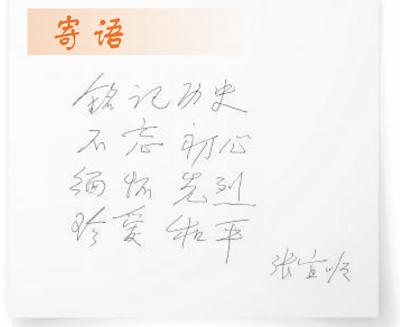 寄语
铭记历史
不忘初心
缅怀先烈
珍爱和平
张宜顺